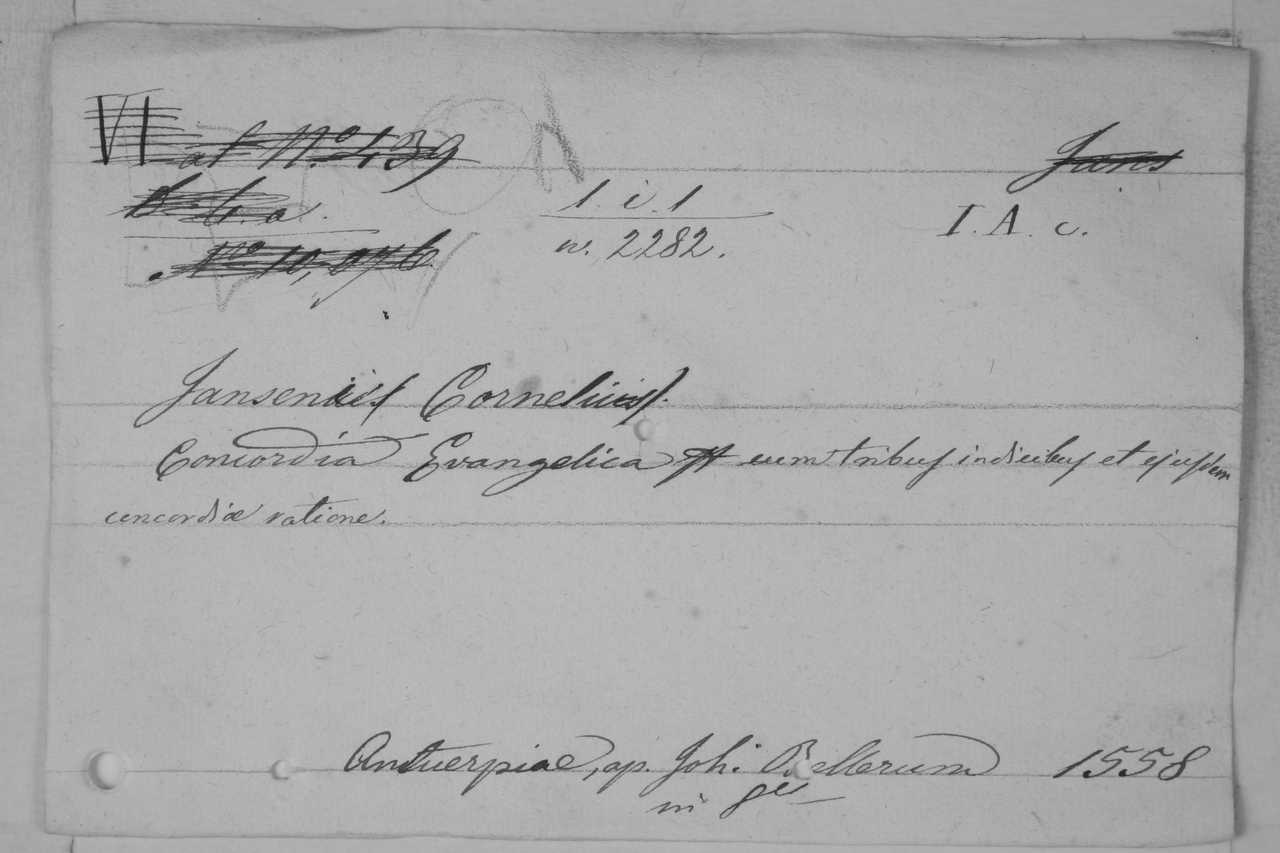 VI at No. 439
Jans
b. a.
1. i. 1
I. A. c.
No 10,
n. 2282.
Jansenius Cornelius.
Concordia Evangelica cum tribus indicibus et ejusdem
concordiæ ratione.
Antverpiae, ap. Joh: Bellerum 1558
in 8vo